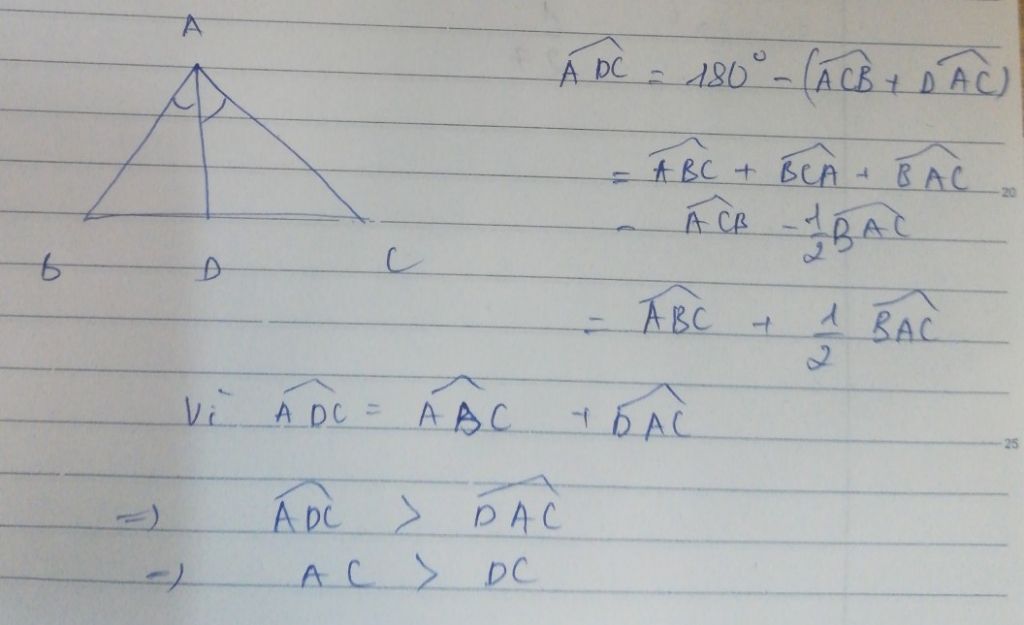 A
B D C
\widehat{ADC} = 180° - (\widehat{ACB} + \widehat{DAC})
= \widehat{ABC} + \widehat{BCA} + \widehat{BAC}
- \widehat{ACB} - \frac{1}{2}\widehat{BAC}
= \widehat{ABC} + \frac{1}{2} \widehat{BAC}
Vì \widehat{ADC} = \widehat{ABC} + \widehat{DAC}
=> \widehat{ADC} > \widehat{DAC}
=> AC > DC
20
25